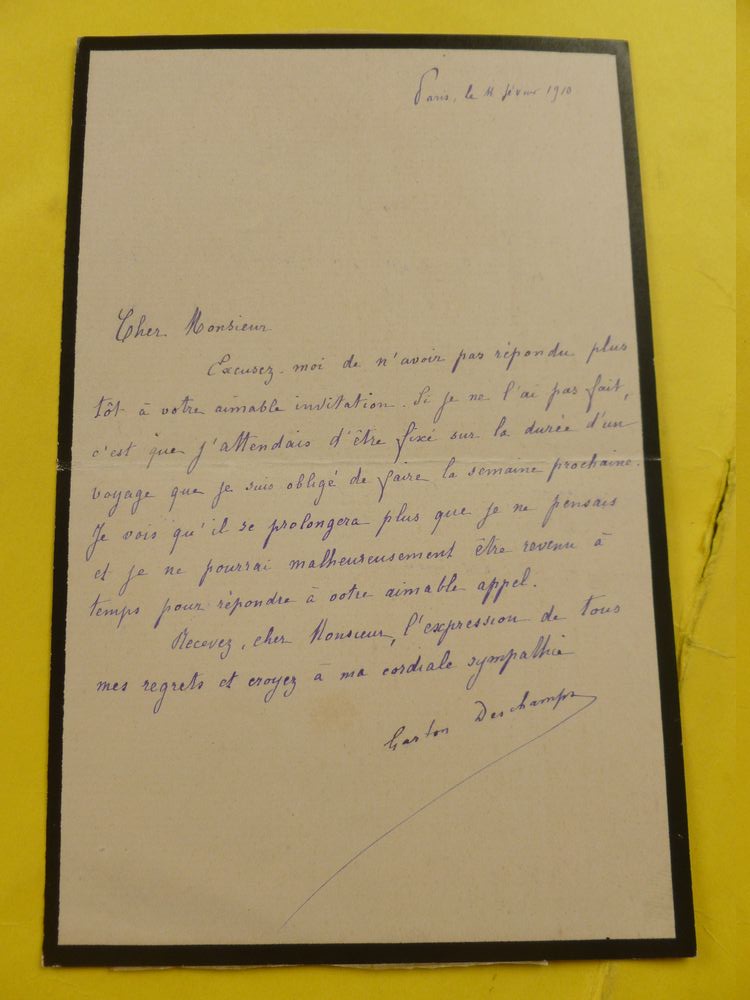 Paris, le 11 février 1910
Cher Monsieur
Excusez-moi de n'avoir pas répondu plus
tôt à votre aimable invitation. Si je ne l'ai pas fait,
c'est que j'attendais d'être fixé sur la durée d'un
voyage que je suis obligé de faire la semaine prochaine.
Je vois qu'il se prolongera plus que je ne pensais
et je ne pourrai malheureusement être revenu à
temps pour répondre à votre aimable appel.
Recevez, cher Monsieur, l'expression de tous
mes regrets et croyez à ma cordiale sympathie
Gaston Deschamps